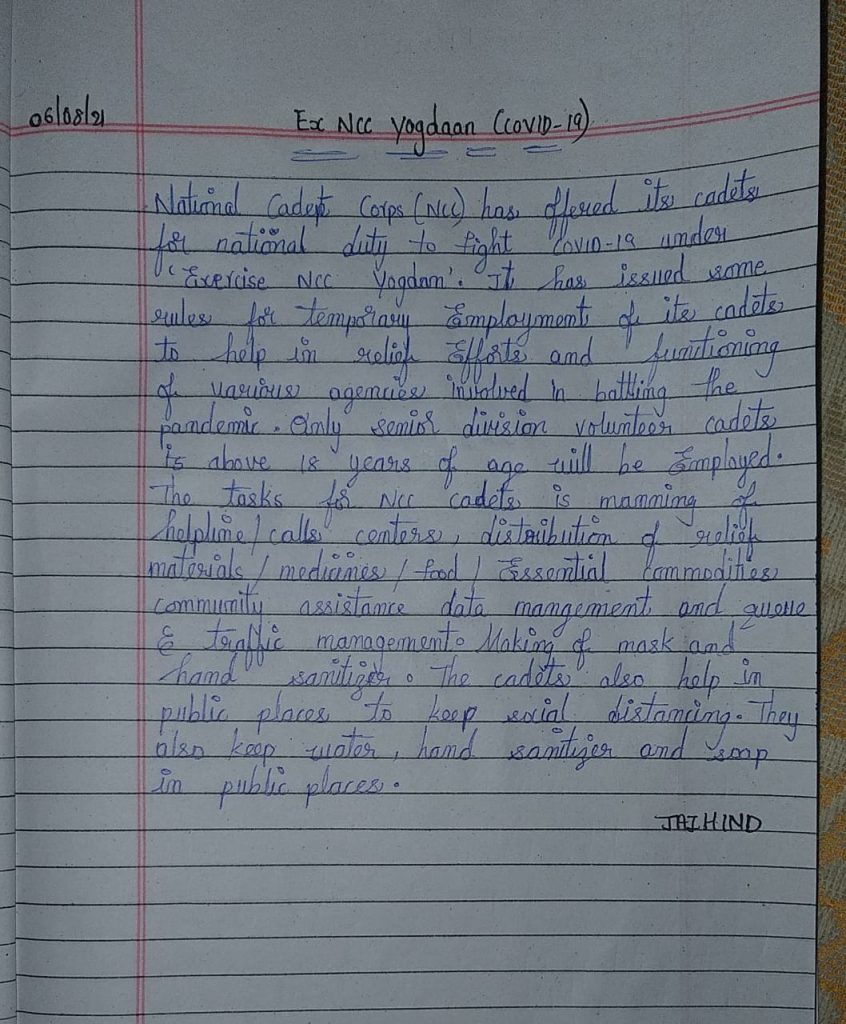 06/08/21
Ex NCC Yogdaan (COVID-19)
National Cadet Corps (NCC) has offered its cadets
for national duty to fight COVID-19 under
'Exercise NCC Yogdan'. It has issued some
rules for temporary Employment of its cadets
to help in relief Efforts and functioning
of various agencies involved in battling the
pandemic. Only senior division volunteer cadets
is above 18 years of age will be Employed.
The tasks for NCC cadets is manning of
helpline/calls centers, distribution of relief
materials / medicines / food / Essential Commodities
community assistance data mangement and queue
& traffic management. Making of mask and
hand sanitizer. The cadets also help in
public places to keep social distancing. They
also keep water, hand sanitizer and soap
in public places.
JAI HIND